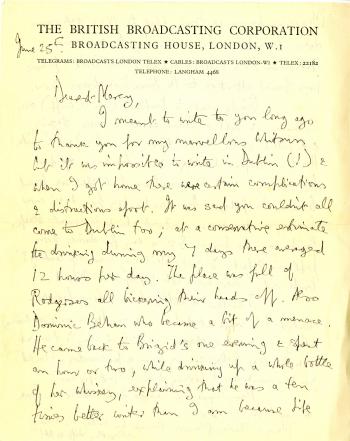 THE BRITISH BROADCASTING CORPORATION
June 25th.
BROADCASTING HOUSE, LONDON, W.1
TELEGRAMS: BROADCASTS LONDON TELEX ★ CABLES: BROADCASTS LONDON-W1 ★ TELEX: 22182
TELEPHONE: LANGHAM 4468
Dearest Mercy,
I meant to write to you long ago
to thank you for my marvellous Whitsun.
but it was impossible to write in Dublin (!) &
when I got home there were certain complications
& distractions afoot. It was sad you couldn't all
come to Dublin too; at a conservative estimate
the drinking during my 7 days there averaged
12 hours per day. The place was full of
Rodgerses all bickering their heads off. Also
Dominic Behan who became a bit of a menace.
He came back to Brigid's one evening & spent
an hour or two, while drinking up a whole bottle
of her whiskey, explaining that he was a ten
times better writer than I am because life